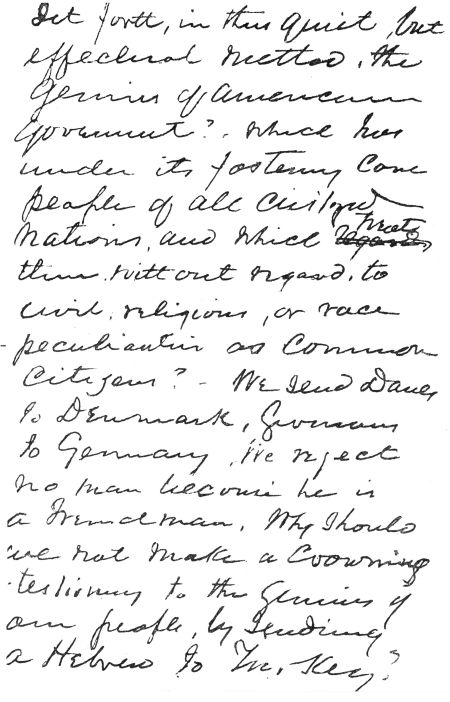 set forth, in this quiet, but
effectual method, the
Genius of American
Government? - which has
under its fostering care
people of all civilized
Nations, and which treats
them without regard, to
civil, religious, or race
peculiarities as common
Citizens? - We send Danes
to Denmark, Germans
to Germany. We reject
no man because he is
a Frenchman. Why should
we not make a crowning
testimony to the Genius of
our people, by sending
a Hebrew to Turkey?